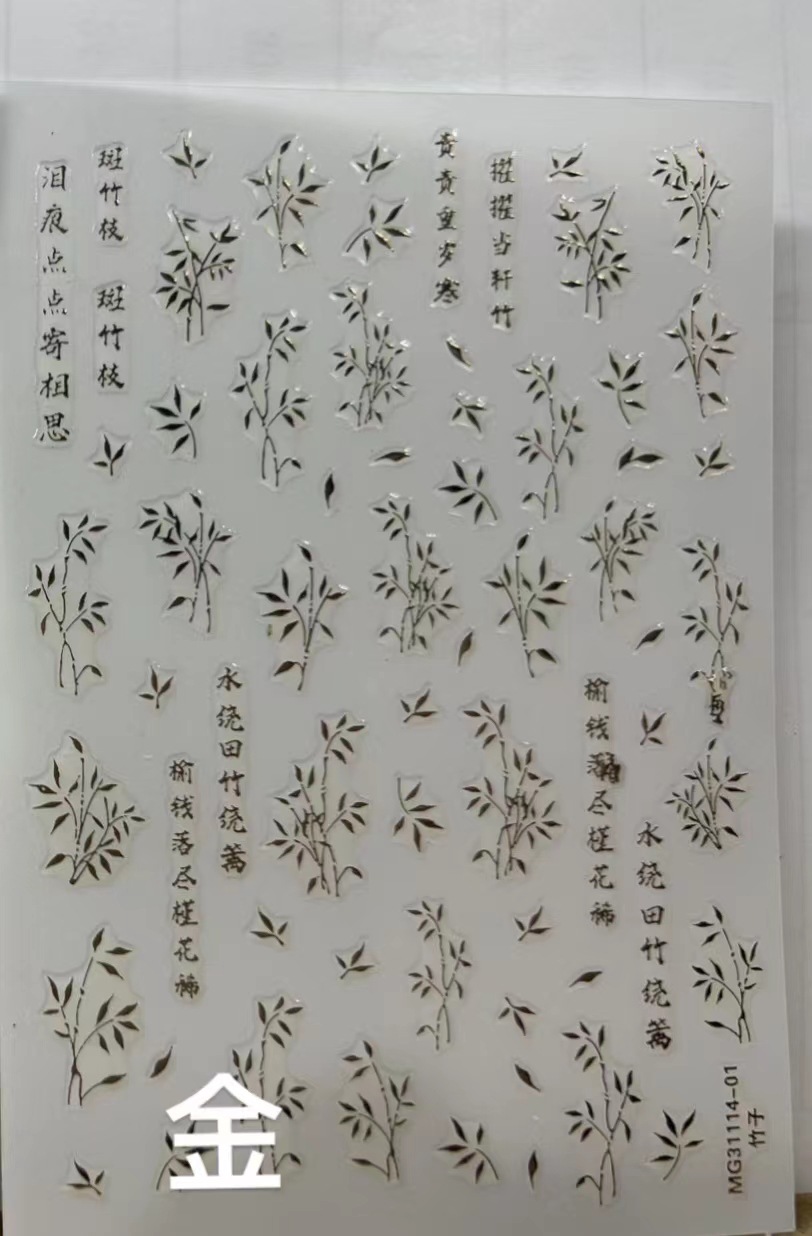 斑竹枝
斑竹枝
泪痕点点寄相思
擢擢当轩竹
青青重岁寒
水绕田竹绕篱
榆钱落尽槿花稀
水绕田竹绕篱
榆钱落尽槿花稀
金
MG31114-01
竹子